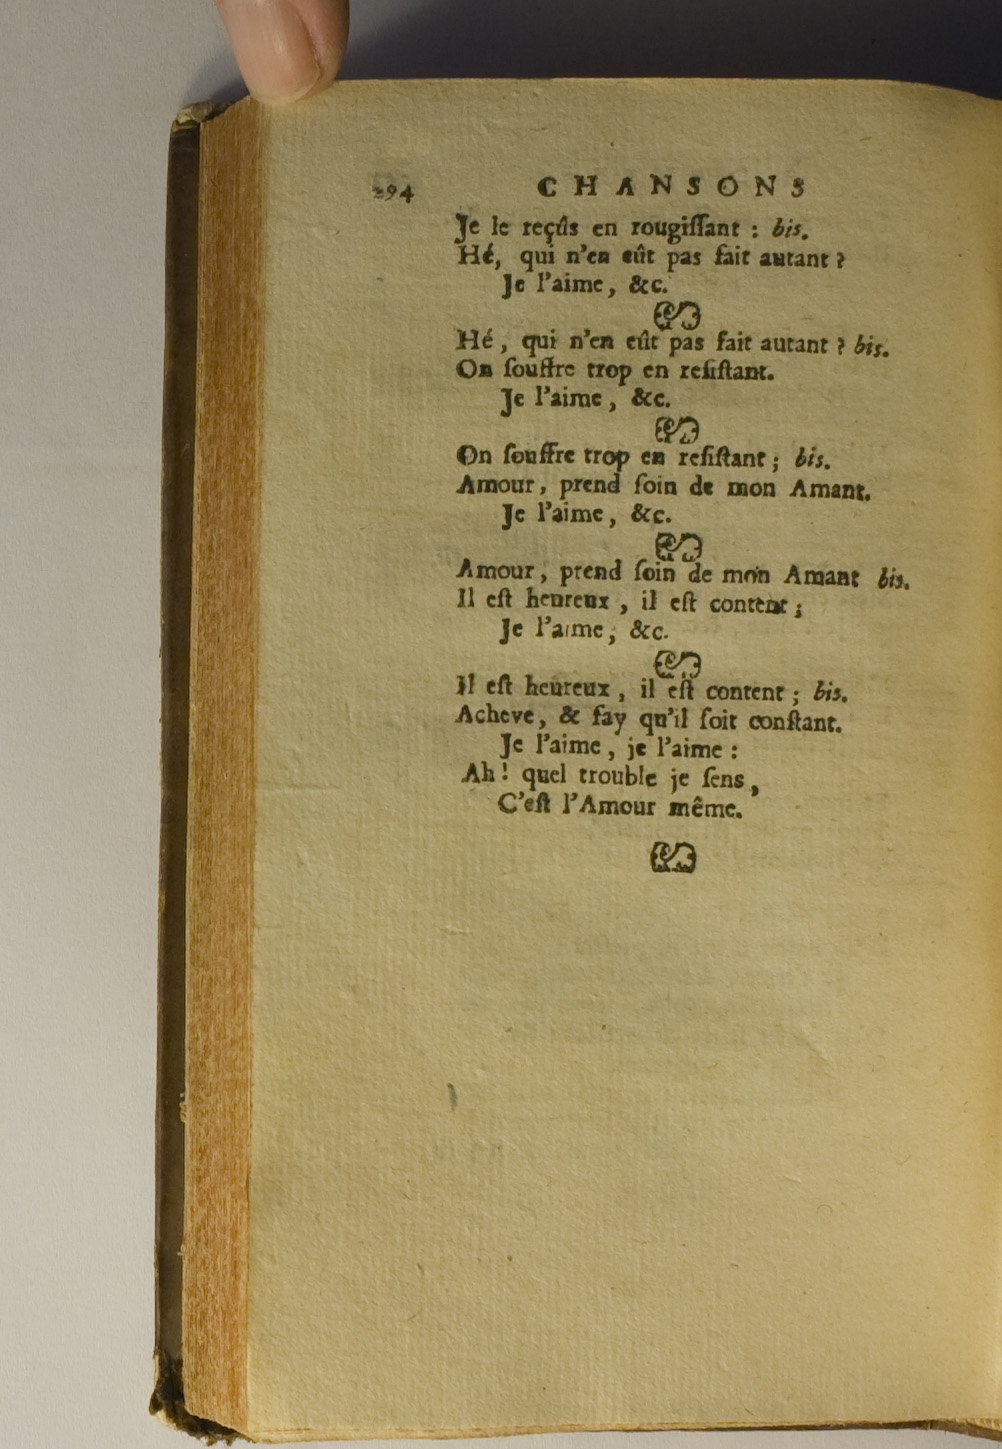 294 CHANSONS
Je le reçûs en rougiſſant : bis.
Hé, qui n'en eût pas fait autant ?
Je l'aime, &c.
Hé, qui n'en eût pas fait autant ? bis.
On ſouffre trop en reſiſtant.
Je l'aime, &c.
On ſouffre trop en reſiſtant ; bis.
Amour, prend ſoin de mon Amant.
Je l'aime, &c.
Amour, prend ſoin de mon Amant bis.
Il eſt heureux, il eſt content ;
Je l'aime, &c.
Il eſt heureux, il eſt content ; bis.
Acheve, & fay qu'il ſoit conſtant.
Je l'aime, je l'aime :
Ah ! quel trouble je ſens,
C'eſt l'Amour même.